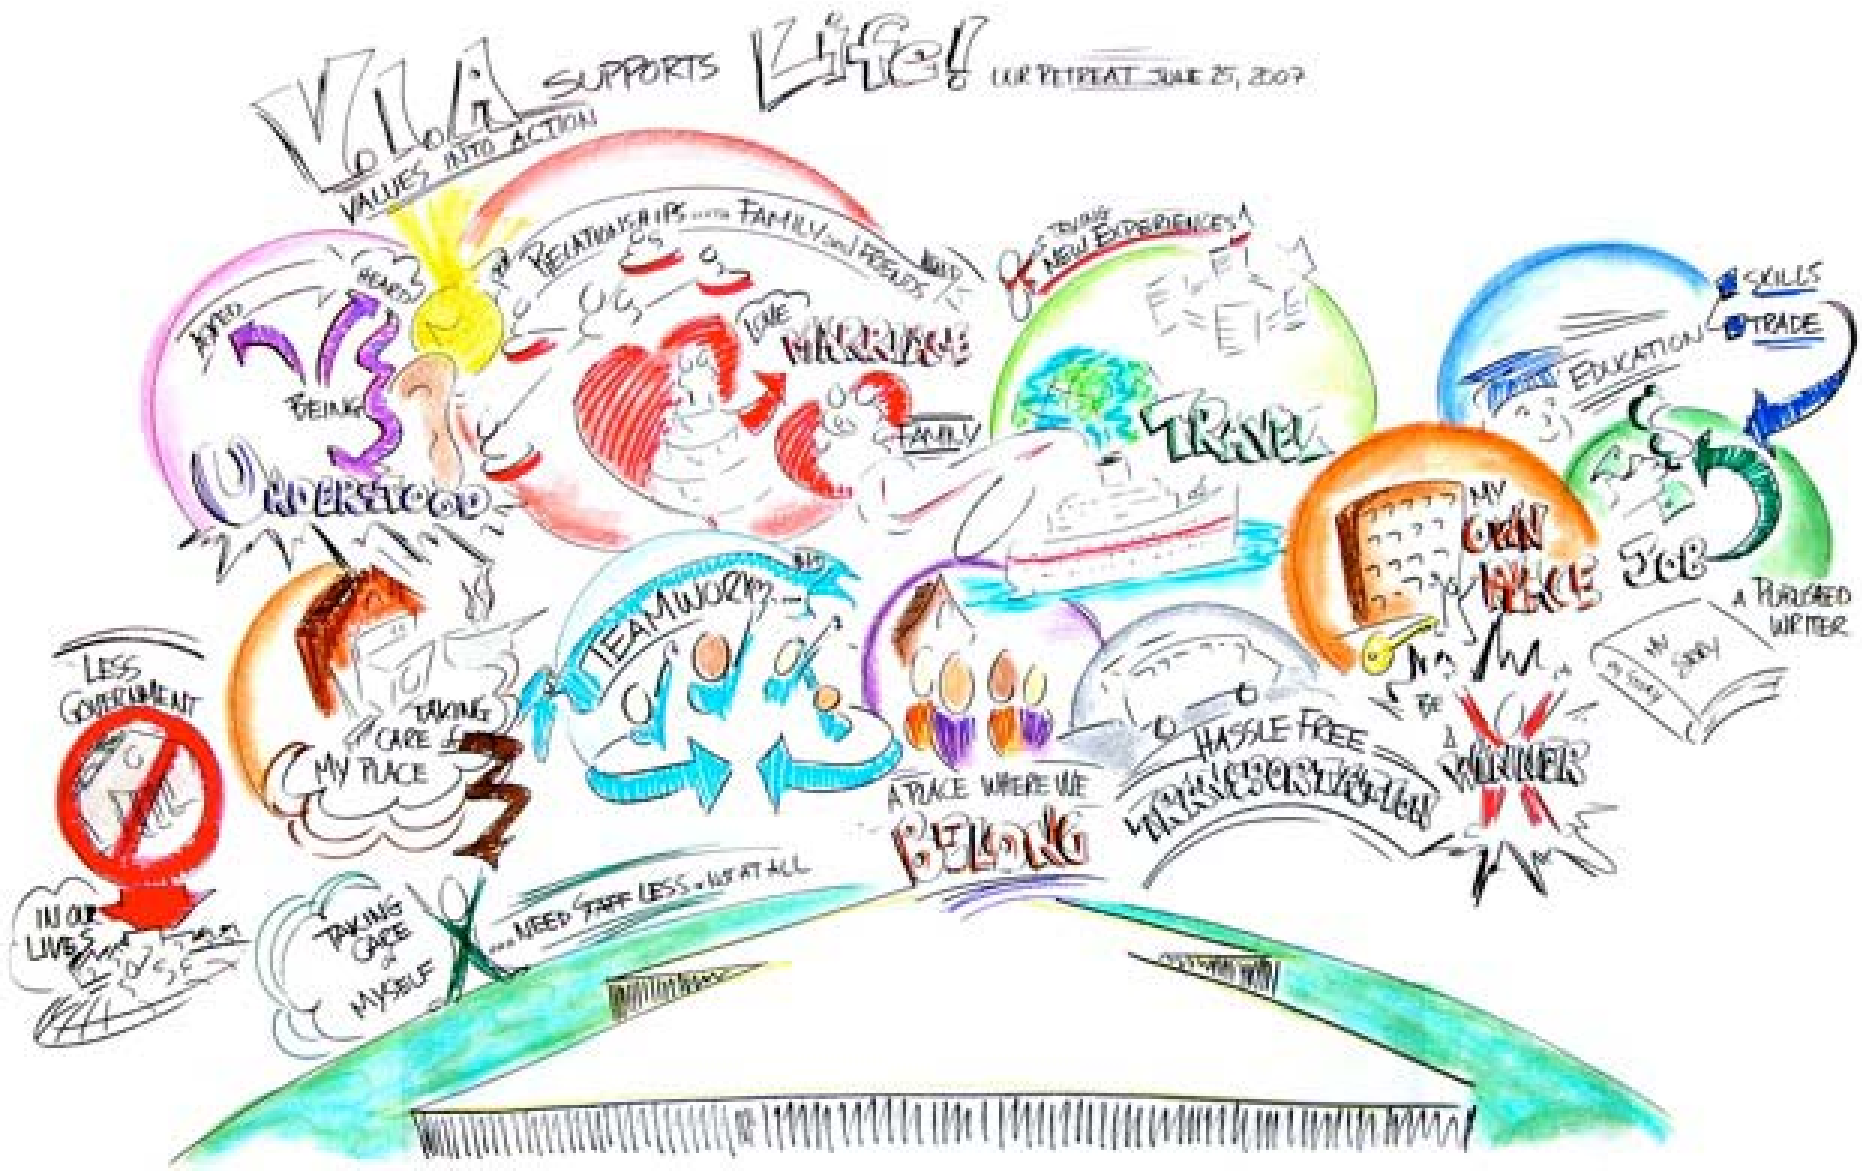 V.I.A SUPPORTS Life!
OUR RETREAT JUNE 25, 2007
VALUES INTO ACTION
RELATIONSHIPS..... FAMILY and FRIENDS
HEARD
BEING
UNDERSTOOD
LOVE
MARRIAGE
FAMILY
NEW EXPERIENCES!
TRAVEL
EDUCATION
SKILLS
TRADE
MY
OWN
PLACE
JOB
A PUBLISHED
WRITER
MY
STORY
MY STORY
LESS
GOVERNMENT
IN OUR
LIVES
TAKING
CARE of
MY PLACE
TEAMWORK...
A PLACE WHERE WE
BELONG
HASSLE FREE
TRANSPORTATION
BE
A
WINNER
TAKING
CARE
of
MYSELF
...NEED STAFF LESS or NOT AT ALL